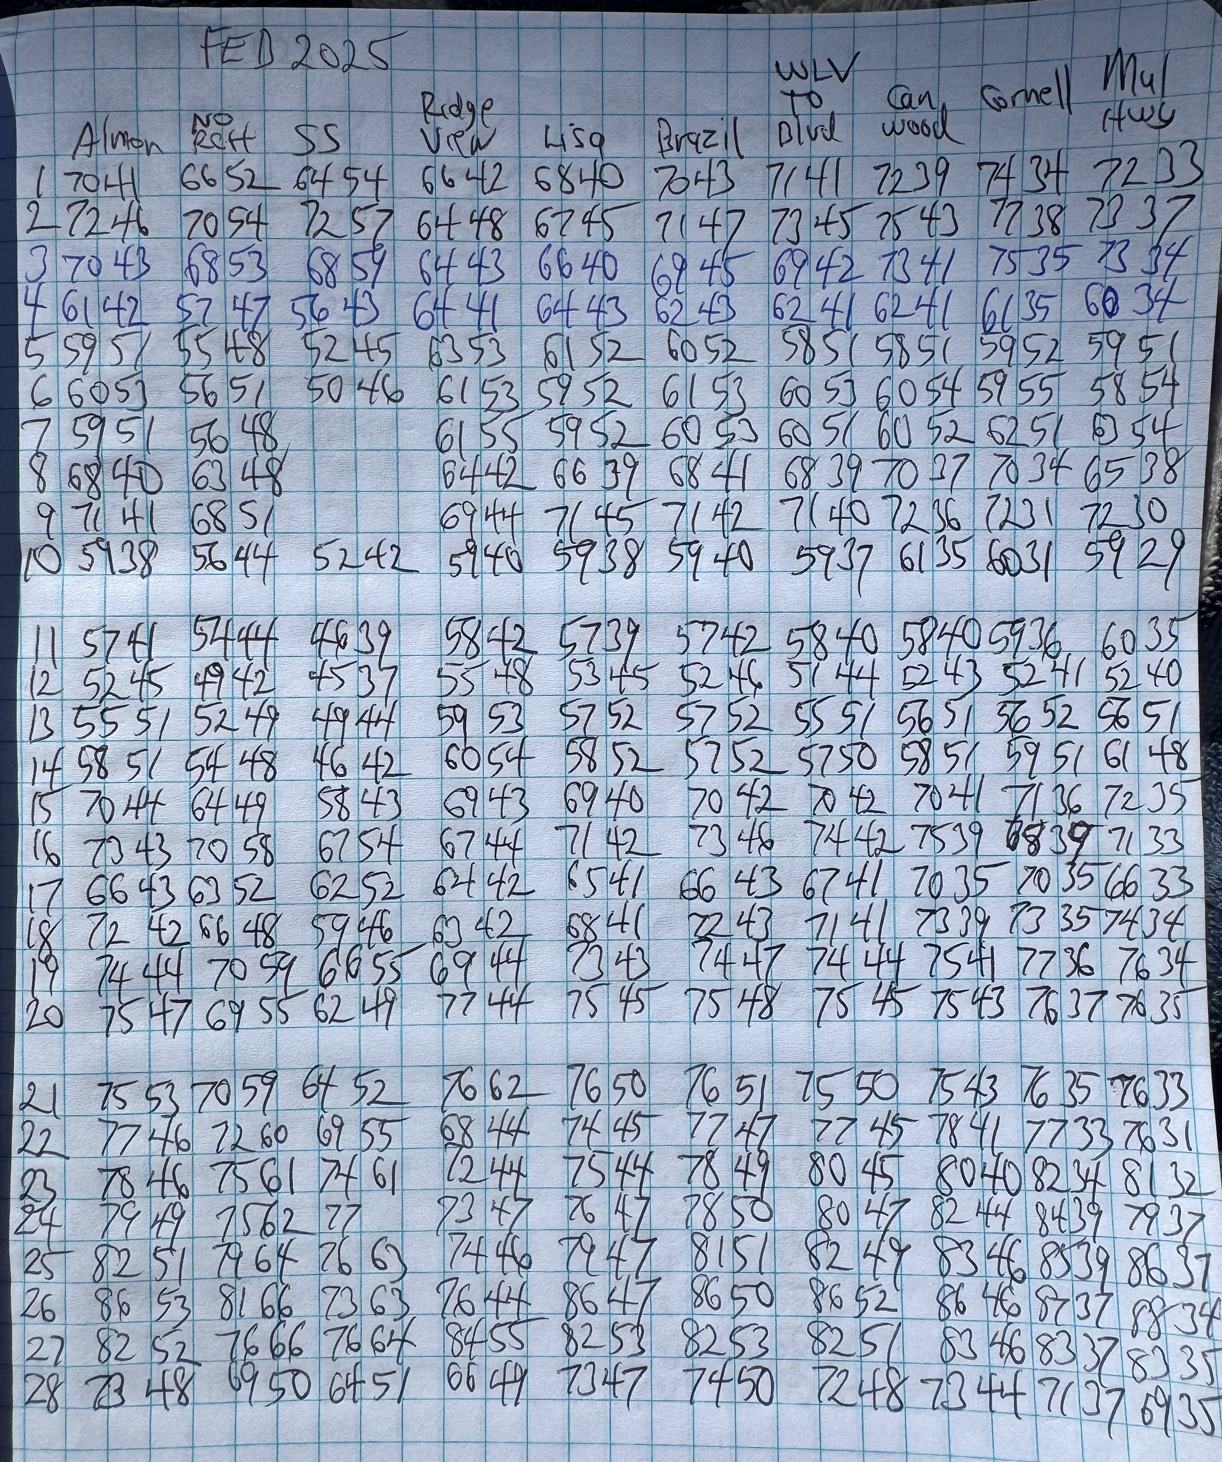 FEB 2025
WLV
Ridge TO Can Cornell Mul
Almon NO RCH SS View Lisa Brazil Blvd wood Hwy
1 70 41 66 52 64 54 66 42 68 40 70 43 71 41 72 39 74 34 72 33
2 72 46 70 54 72 57 64 48 67 45 71 47 73 45 75 43 77 38 73 37
3 70 43 68 53 68 59 64 43 66 40 69 45 69 42 73 41 75 35 73 34
4 61 42 57 47 56 43 64 41 64 43 62 43 62 41 62 41 61 35 60 34
5 59 51 55 48 52 45 63 53 61 52 60 52 58 51 58 51 59 52 59 51
6 60 53 56 51 50 46 61 53 59 52 61 53 60 53 60 54 59 55 58 54
7 59 51 56 48 61 55 59 52 60 53 60 51 60 52 62 51 63 54
8 68 40 63 48 64 42 66 39 68 41 68 39 70 37 70 34 65 38
9 71 41 68 51 69 44 71 45 71 42 71 40 72 36 72 31 72 30
10 59 38 56 44 52 42 59 40 59 38 59 40 59 37 61 35 60 31 59 29
11 57 41 54 44 46 39 58 42 57 39 57 42 58 40 58 40 59 36 60 35
12 52 45 49 42 45 37 55 48 53 45 52 46 51 44 52 43 52 41 52 40
13 55 51 52 49 49 44 59 53 57 52 57 52 55 51 56 51 56 52 56 51
14 58 51 54 48 46 42 60 54 58 52 57 52 57 50 58 51 59 51 61 48
15 70 44 64 49 58 43 69 43 69 40 70 42 70 42 70 41 71 36 72 35
16 73 43 70 58 67 54 67 44 71 42 73 46 74 42 75 39 68 39 71 33
17 66 43 63 52 62 52 64 42 65 41 66 43 67 41 70 35 70 35 66 33
18 72 42 66 48 59 46 63 42 68 41 72 43 71 41 73 39 73 35 74 34
19 74 44 70 59 66 55 69 44 73 43 74 47 74 44 75 41 77 36 76 34
20 75 47 69 55 62 49 77 44 75 45 75 48 75 45 75 43 76 37 76 35
21 75 53 70 59 64 52 76 62 76 50 76 51 75 50 75 43 76 35 76 33
22 77 46 72 60 69 55 68 44 74 45 77 47 77 45 78 41 77 33 76 31
23 78 46 75 61 74 61 72 44 75 44 78 49 80 45 80 40 82 34 81 32
24 79 49 75 62 77 73 47 76 47 78 50 80 47 82 44 84 39 79 37
25 82 51 79 64 76 63 74 46 79 47 81 51 82 49 83 46 85 39 86 37
26 86 53 81 66 73 63 76 44 86 47 86 50 86 52 86 46 87 37 88 34
27 82 52 76 66 76 64 84 55 82 53 82 53 82 51 83 46 83 37 83 35
28 73 48 69 50 64 51 66 49 73 47 74 50 72 48 73 44 71 37 69 35